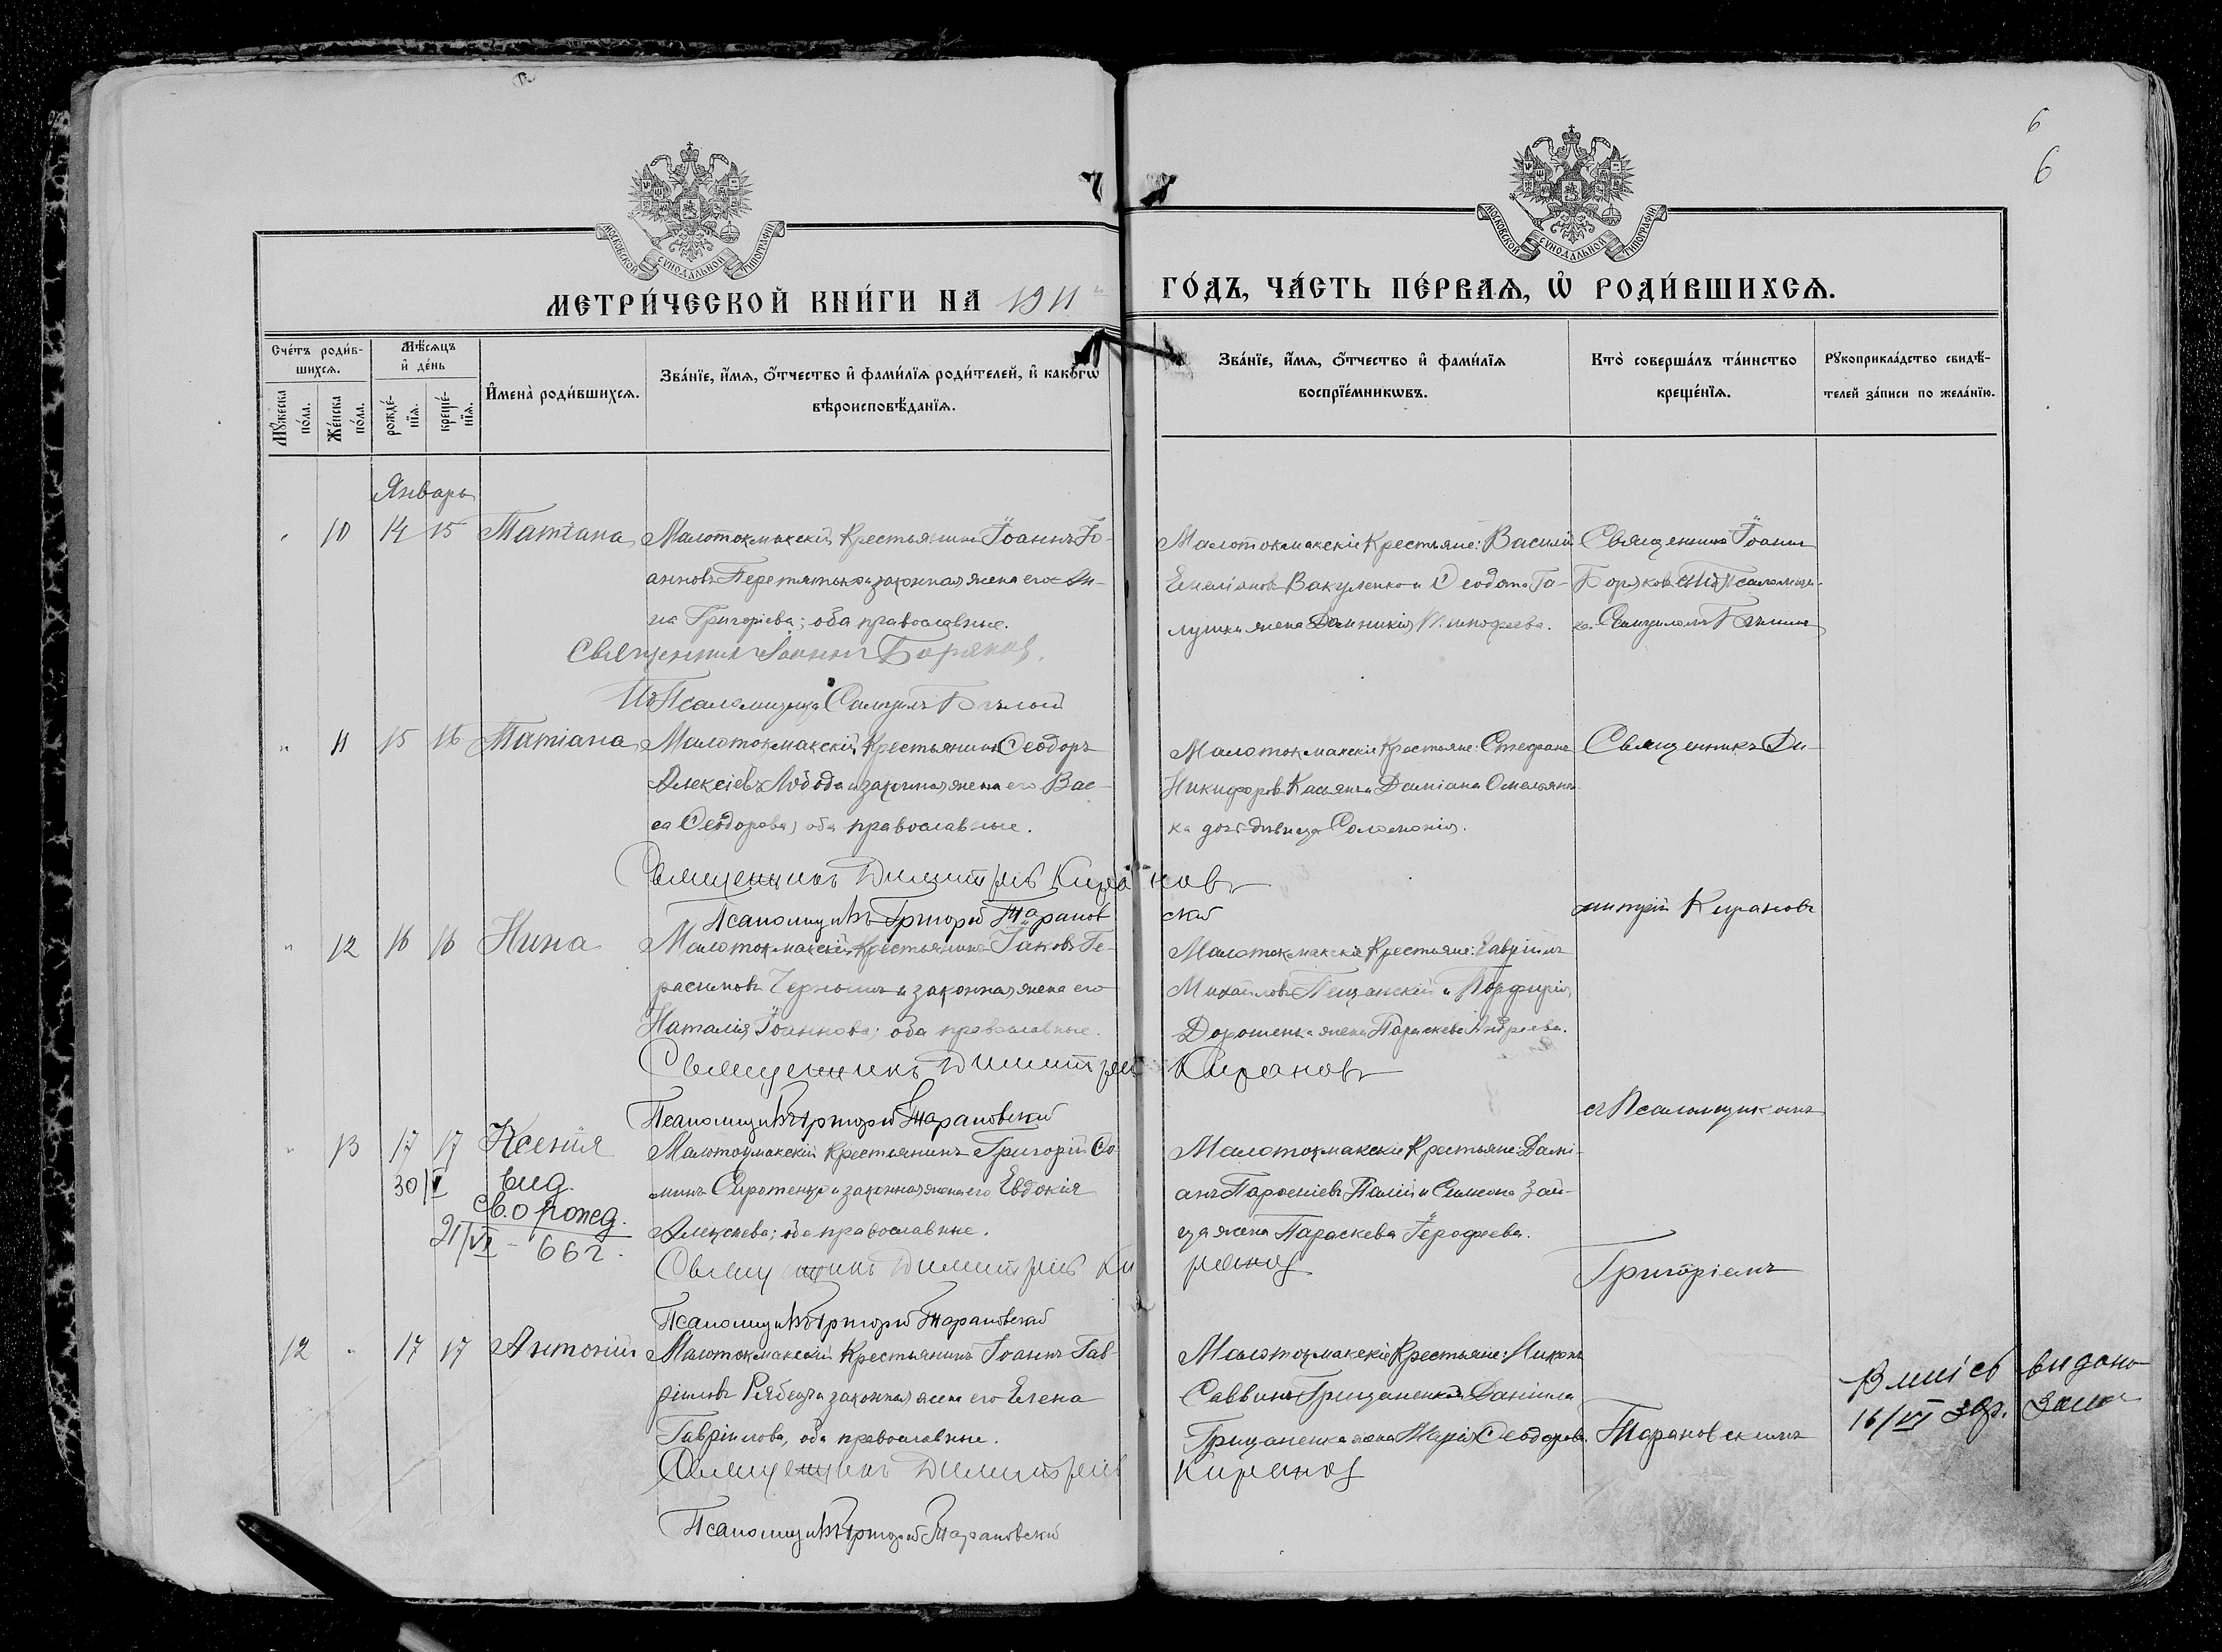 6
6
МОСКОВСКОЙ СѴНОДАЛЬНОЙ ТИПОГРАФІИ
МОСКОВСКОЙ СѴНОДАЛЬНОЙ ТИПОГРАФІИ
МЕТРИ́ЧЕСКОЙ КНИ́ГИ НА 1911
ГО́ДЪ, ЧА́СТЬ ПЕ́РВАѦ, Ѡ҆ РОДИ́ВШИХСѦ.
Сче́тъ роди́в-
шихсѧ.
Мꙋ́жеска по́ла.
Же́нска по́ла.
Мѣ́сѧцъ и҆ де́нь
рожде́-нїѧ.
креще́-нїѧ.
И҆мена̀ роди́вшихсѧ.
Зва́нїе, и҆́мѧ, ѻ҆́тчество и҆ фами́лїѧ роди́телей, и҆ како́гѡ
вѣроисповѣ́данїѧ.
Зва́нїе, и҆́мѧ, ѻ҆́тчество и҆ фами́лїѧ
воспрїе́мникѡвъ.
Кто̀ соверша́лъ та́инство
креще́нїѧ.
Рꙋкоприкла́дство свидѣ́-
телей за́писи по жела́нїю.
Январь
10 14 15 Татіана Малотокмакскій Крестьянинъ Іоаннъ Іо-
анновъ Перетятько и законная жена его Ан-
на Григоріева; оба православные.
Священникъ Іоаннъ Боряков
Псаломщика Самуилъ Бѣлый
Малотокмакскіе Крестьяне: Василій
Емеліановъ Вакуленко и Ѳеодота Га-
лушки жена Домникія Тимофеева.
Священникъ Іоаннъ
Боряковъ съ Псаломщи-
ка Самуиломъ Бѣлымъ
11 15 16 Татіана Малотокмакскій Крестьянинъ Ѳеодоръ
Алексіевъ Лобода и законная жена его Вас-
са Ѳеодорова; оба православные.
Священникъ Димитрій Кирановъ
Псаломщикъ Григорій Тарановскій
Малотокмакскіе Крестьяне: Стефанъ
Никифоровъ Касьянъ и Даміана Омельянен-
ка дочь дѣвица Соломонія.
Священникъ Ди-
митрій Кирановъ
12 16 16 Нина Малотокмакскій Крестьянинъ Іаковъ Ге-
расимовъ Чернышъ и законная жена его
Наталія Іоаннова; оба православные.
Священникъ Димитрій Кирановъ
Псаломщикъ Григорій Тарановскій
Малотокмакскіе Крестьяне: Гавріилъ
Михайловъ Пещанскій и Порфирія
Дорошенка жена Параскева Андреева.
съ Псаломщикомъ
13 17 17 Ксенія Малотокмакскій Крестьянинъ Григорій Ѳо-
минъ Сиротенко и законная жена его Евдокія
Алексіева; оба православные.
30/V вид.
Св. о рожд.
21/VI - 66 г.
Священникъ Димитрій Киранов
Псаломщикъ Григорій Тарановскій
Малотокмакскіе Крестьяне: Дамі-
анъ Парѳеніевъ Палій и Симеона Зай-
ца жена Параскева Іерофеева.
Григоріемъ
12 17 17 Антоній Малотокмакскій Крестьянинъ Іоаннъ Гав-
ріиловъ Рябец и законная жена его Елена
Гавріилова, оба православные.
Священникъ Димитрій Киранов
Псаломщикъ Григорій Тарановскій
Малотокмакскіе Крестьяне: Никонъ
Саввинъ Грицаненко и Даніила
Грицаненка жена Марія Ѳеодорова.
Тарановскимъ
видано
16/VI